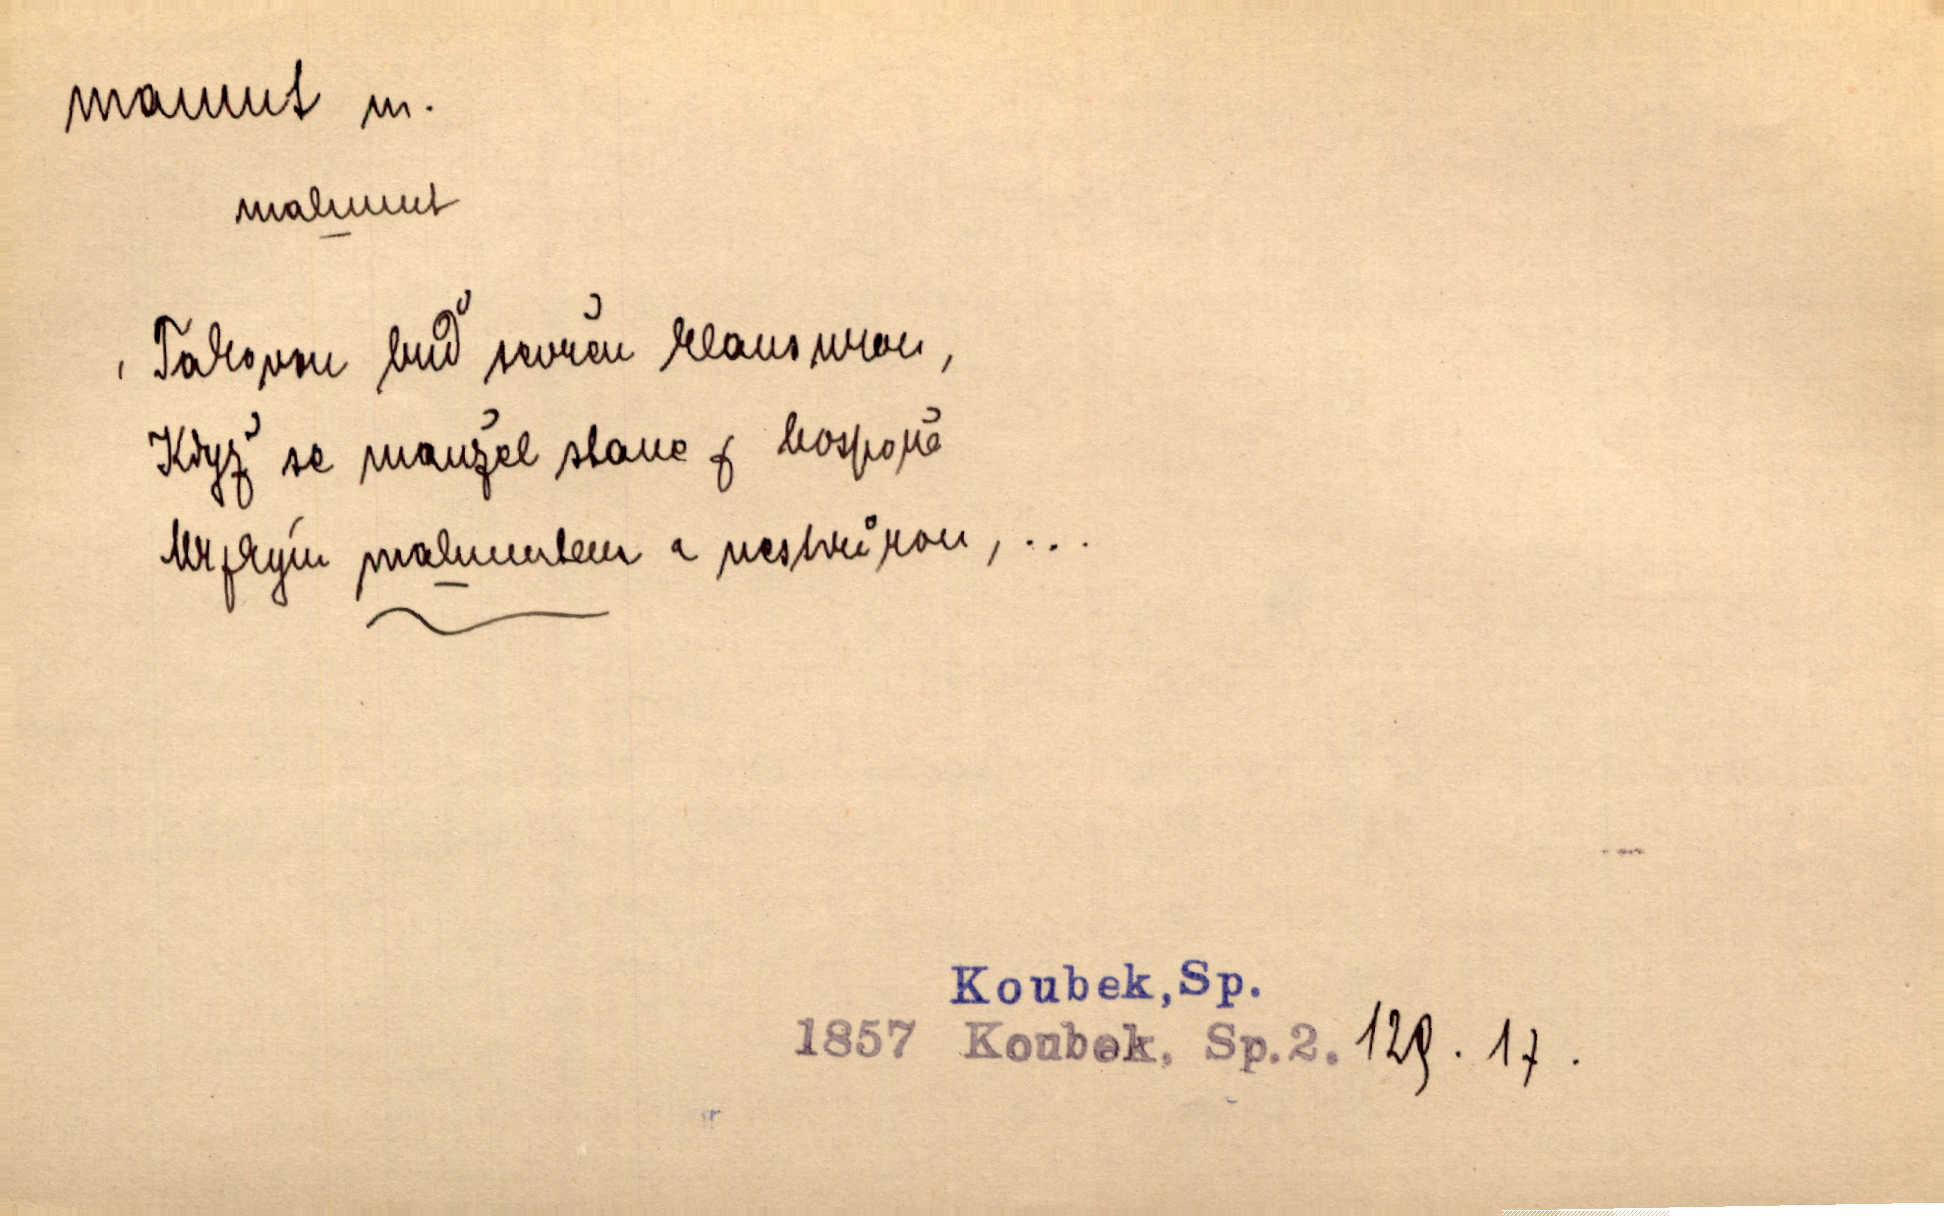 mamut m.
mahmut
Takovou buď sevřen klausurou,
Když se manžel stane z hospope
Mrzkým mahmutem a nestvůrou, ...
Koubek, Sp.
1857 Koubek, Sp.2. 129. 17.